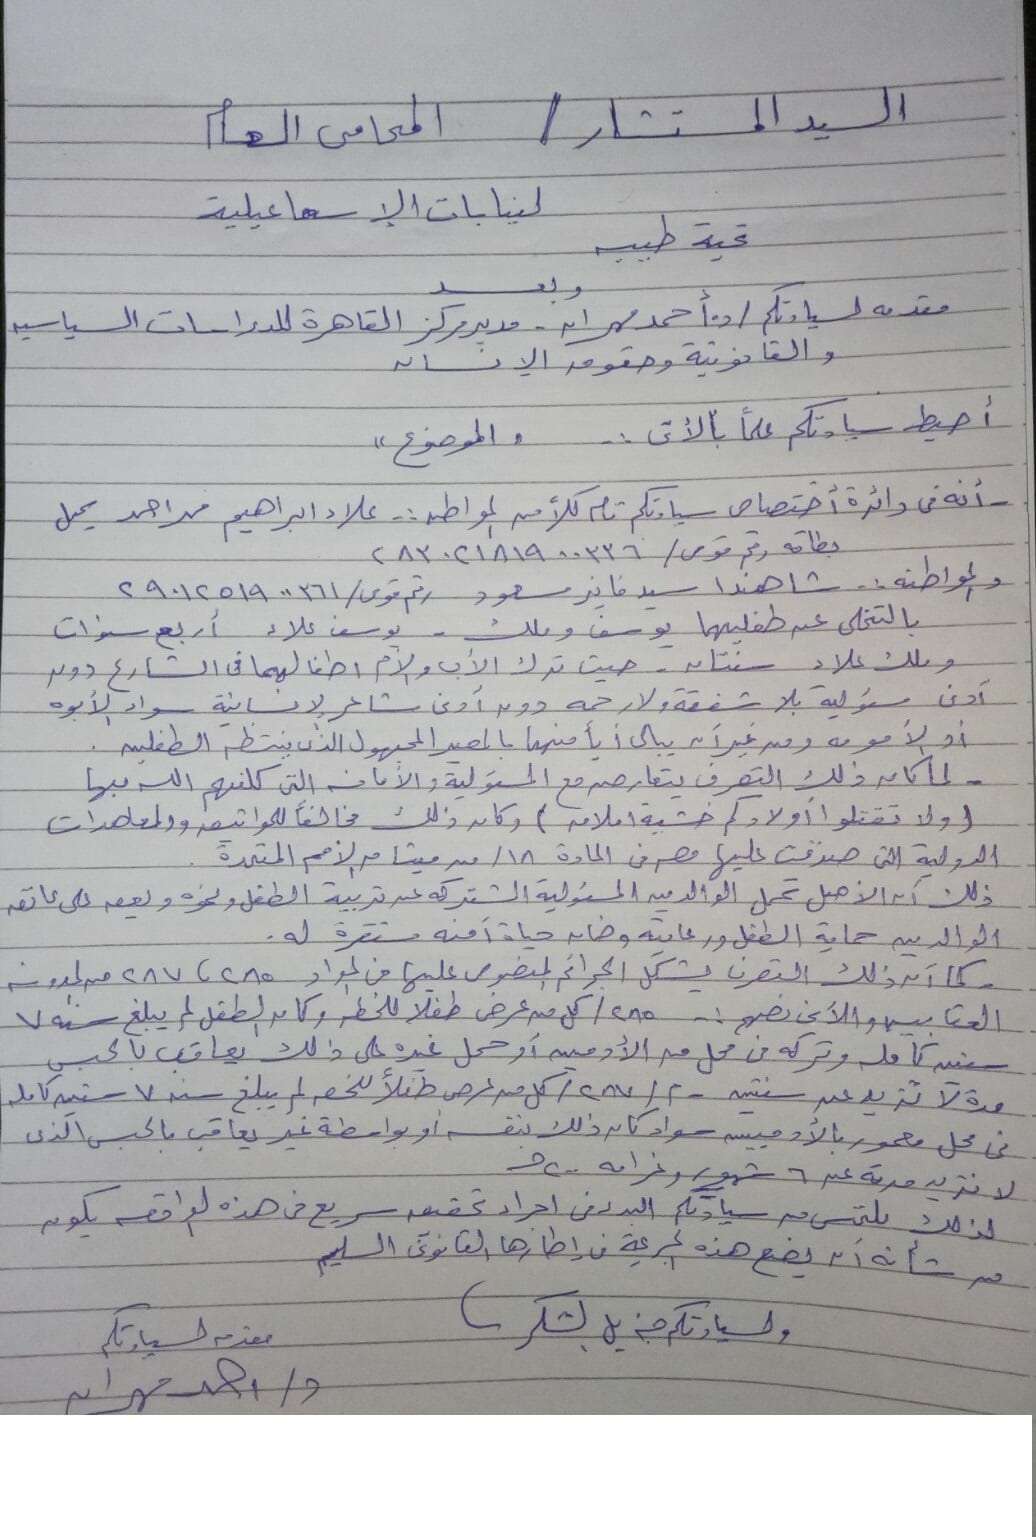 السيد المستشار / المحامى العام
لنيابات الإسماعيلية
تحية طيبه
وبعد
مقدمه لسيادتكم / د. أحمد مهران - مدير مركز القاهرة للدراسات السياسيه
والقانونية وحقوق الإنسان
أحيط سيادتكم علماً بالأتى :- " الموضوع "
- أنه فى دائرة أختصاص سيادتكم قام كلاً من المواطن :- علاء ابراهيم محمد احمد يحمل
بطاقه رقم قومى /
والمواطنه :- شاهندا سيد فايز مسعود رقم قومى /
بالتخلى عن طفليهما يوسف وملك - يوسف علاء أربع سنوات
وملك علاء سنتان - حيث ترك الأب والأم اطفالهما فى الشارع دون
أدنى مسؤلية بلا شفقة ولا رحمه دون أدنى مشاعر إنسانية سواء الأبوه
أو الأمومه ومن غير أن يبالى أياً منهما بالمصير المجهول الذى ينتظر الطفلين .
- لما كان ذلك التصرف يتعارض مع المسئولية والأمانه التى كلفهم الله بها
( ولا تقتلوا أولادكم خشية املاق ) وكان ذلك مخالفاً للمواثيق والمعاهدات
الدولية التى صدقت عليها مصر فى المادة ١٨/ من ميثاق الأمم المتحدة .
ذلك أن الأصل تحمل الوالدين المسئولية المشتركه عن تربية الطفل ونموه ويقع على عاتق
الوالدين حماية الطفل ورعايته وضمان حياة أمنه مستقرة له .
- كما أن ذلك التصرف يشكل الجرائم المنصوص عليها فى المواد ٢٨٥ ، ٢٨٧ من
العقابيه والأتى نصهم :- ٢٨٥/ كل من عرض طفلاً للخطر وكان الطفل لم يبلغ سنه ٧
سنين كامله وتركه فى محل من الأدميين أو حمل غيره على ذلك يعاقب بالحبس
مدة لا تزيد عن سنتين - ٢/ ٢٨٧/ كل من عرض طفلاً للخطر لم يبلغ سنه ٧ سنين كامله
فى محل معمور بالأدميين سواء كان ذلك بنفسه أو بواسطة غير يعاقب بالحبس الذى
لا تزيد مدته عن ٦ شهور وغرامه ٢٠٠ج
لذلك نلتمس من سيادتكم البدء فى اجراء تحقيق سريع فى هذه الواقعه يكون
من شأنه أن يضع هذه الجريمة فى إطارها القانونى السليم
ولسيادتكم جزيل الشكر
مقدمه لسيادتكم
د/ احمد مهران